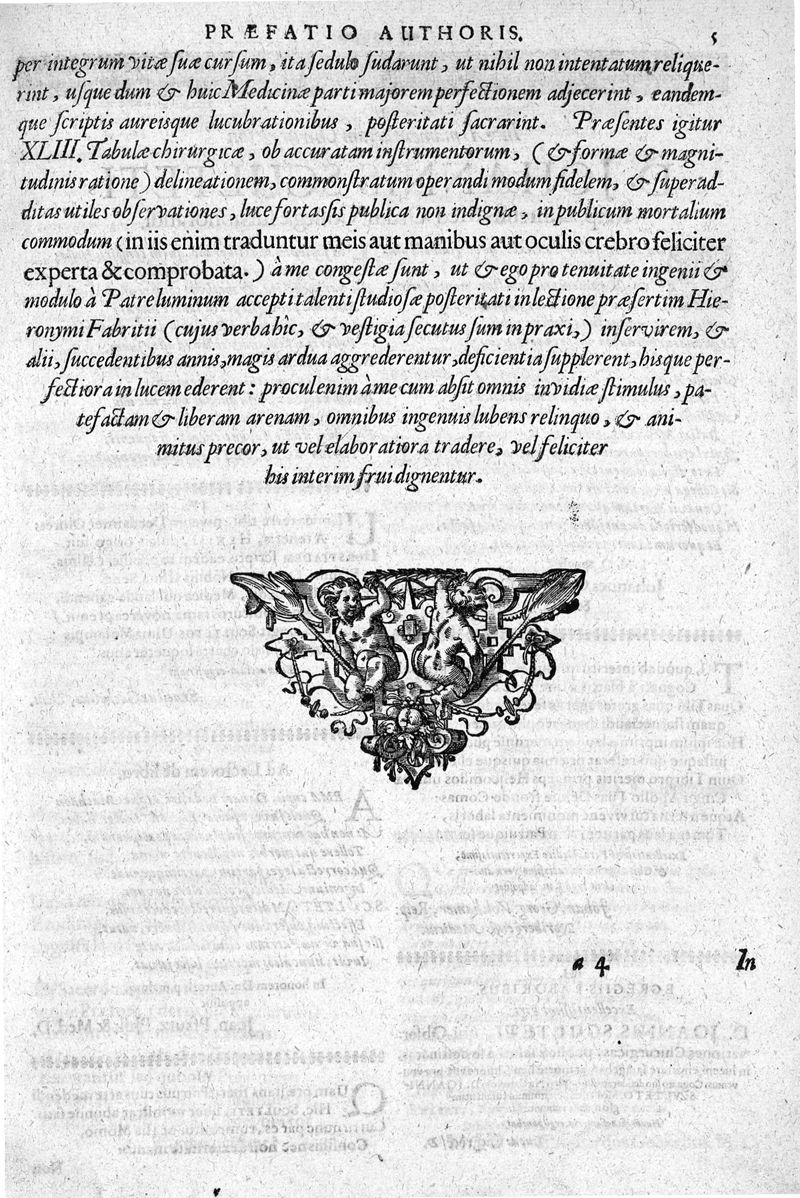 PRÆFATIO AUTHORIS. 5
per integrum vitæ suæ cursum, ita sedulo sudarunt, ut nihil non intentatum relique-
rint, usque dum & huic Medicinæ parti majorem perfectionem adjecerint, eandem-
que scriptis aureisque lucubrationibus, posteritati sacrarint. Præsentes igitur
XLIII. Tabulæ chirurgicæ, ob accuratam instrumentorum, (& formæ & magni-
tudinis ratione) delineationem, commonstratum operandi modum fidelem, & superad-
ditas utiles observationes, luce fortassis publica non indignæ, in publicum mortalium
commodum (in iis enim traduntur meis aut manibus aut oculis crebro feliciter
experta & comprobata.) à me congestæ sunt, ut & ego pro tenuitate ingenii &
modulo à Patre luminum accepti talenti studiosæ posteritati in lectione præsertim Hie-
ronymi Fabritii (cujus verba hîc, & vestigia secutus sum in praxi,) inservirem, &
alii, succedentibus annis, magis ardua aggrederentur, deficientia supplerent, hisque per-
fectiora in lucem ederent: procul enim à me cum absit omnis invidiæ stimulus, pa-
tefactam & liberam arenam, omnibus ingenuis lubens relinquo, & ani-
mitus precor, ut vel elaboratiora tradere, vel feliciter
his interim frui dignentur.
a 4 In